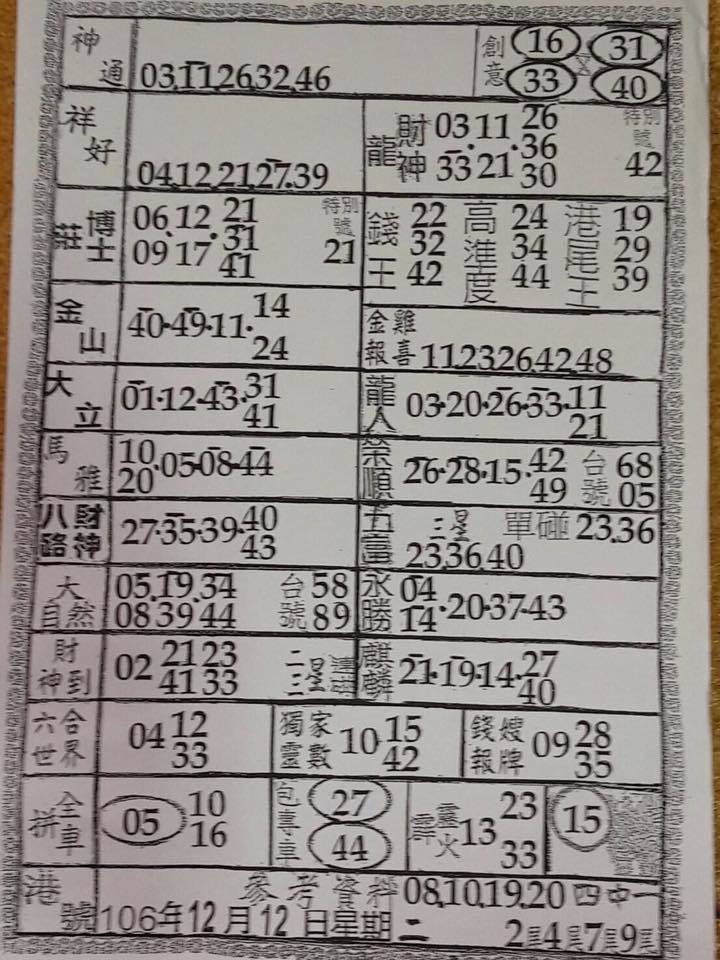 神通 03.11.26.32.46
創意 16 31 33 40
祥好 04.12.21.27.39
龍 財神 03.11.26 33.21.36 30 特別號 42
莊博士 06.12.21 09.17.31 41 特別號 21
錢王 22 32 42
高進度 24 34 44
港尾王 19 29 39
金山 40.49.11.14 24
金雞報喜 11.23.26.42.48
大立 01.12.43.31 41
龍人 03.20.26.33.11 21
馬雅 10 20.05.08.44
榮順 26.28.15.42 49 台號 68 05
八路財神 27.35.39.40 43
五富 三星 23.36.40 單碰 23.36
大自然 05.19.34 08.39.44 台號 58 89
永勝 04 14.20.37.43
財神到 02 21 23 41 33 二三星連碰
麒麟 21.19.14.27 40
六合世界 04 12 33
獨家靈數 10.15 42
錢嫂報牌 09 28 35
全車拼 05 10 16
包專車 27 44
霹靂火 13 23 33
15
港號 參考資料 08.10.19.20 四中一
106年12月12日星期二 2尾4尾7尾9尾